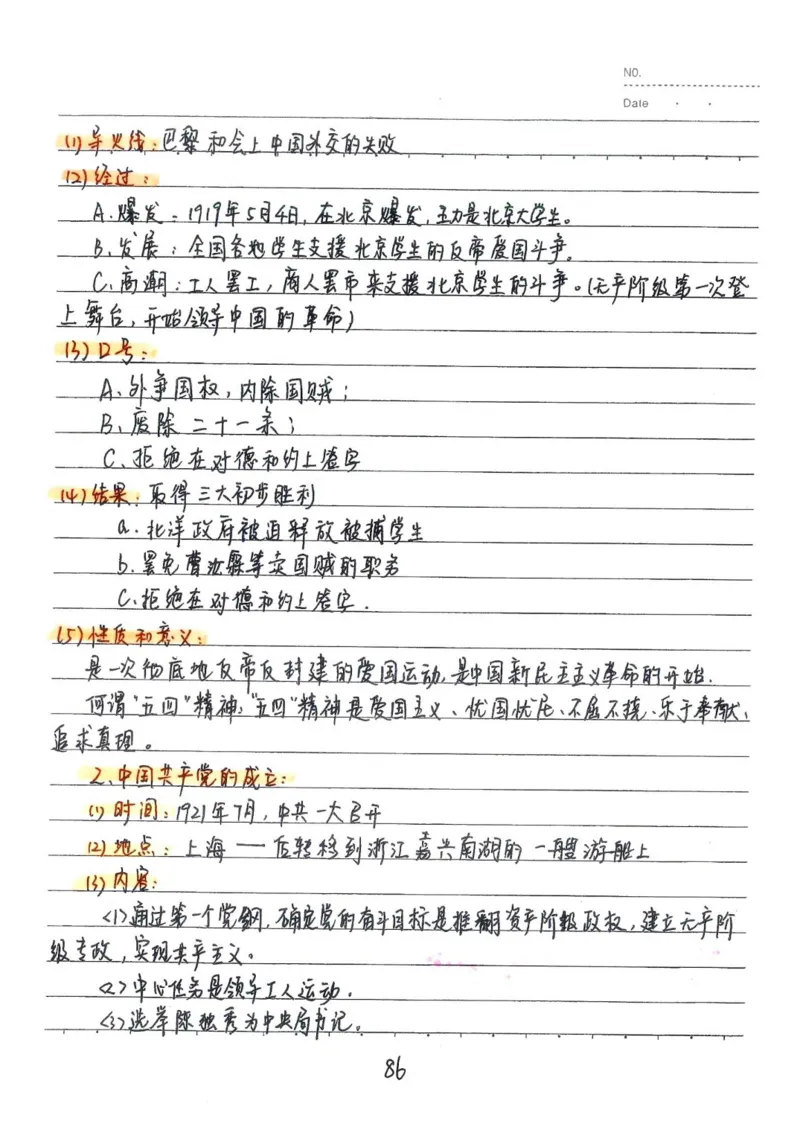 NO.
Date · ·
(1)导火线:巴黎和会上中国外交的失败
(2)经过:
A.爆发:1919年5月4日,在北京爆发,主力是北京大学生。
B.发展:全国各地学生支援北京学生的反帝爱国斗争。
C.高潮:工人罢工,商人罢市来支援北京学生的斗争。(无产阶级第一次登
上舞台,开始领导中国的革命)
(3)口号:
A.外争国权,内除国贼;
B.废除二十一条;
C.拒绝在对德和约上签字
(4)结果:取得三大初步胜利
a.北洋政府被迫释放被捕学生
b.罢免曹汝霖等卖国贼的职务
C.拒绝在对德和约上签字.
(5)性质和意义:
是一次彻底地反帝反封建的爱国运动,是中国新民主主义革命的开始.
何谓"五四"精神:"五四"精神是爱国主义、忧国忧民、不屈不挠、乐于奉献、
追求真理。
2、中国共产党的成立:
(1)时间:1921年7月,中共一大召开
(2)地点:上海——后转移到浙江嘉兴南湖的一艘游船上
(3)内容:
<1>通过第一个党纲,确定党的奋斗目标是推翻资产阶级政权,建立无产阶
级专政,实现共产主义。
<2>中心任务是领导工人运动.
<3>选举陈独秀为中央局书记。
86